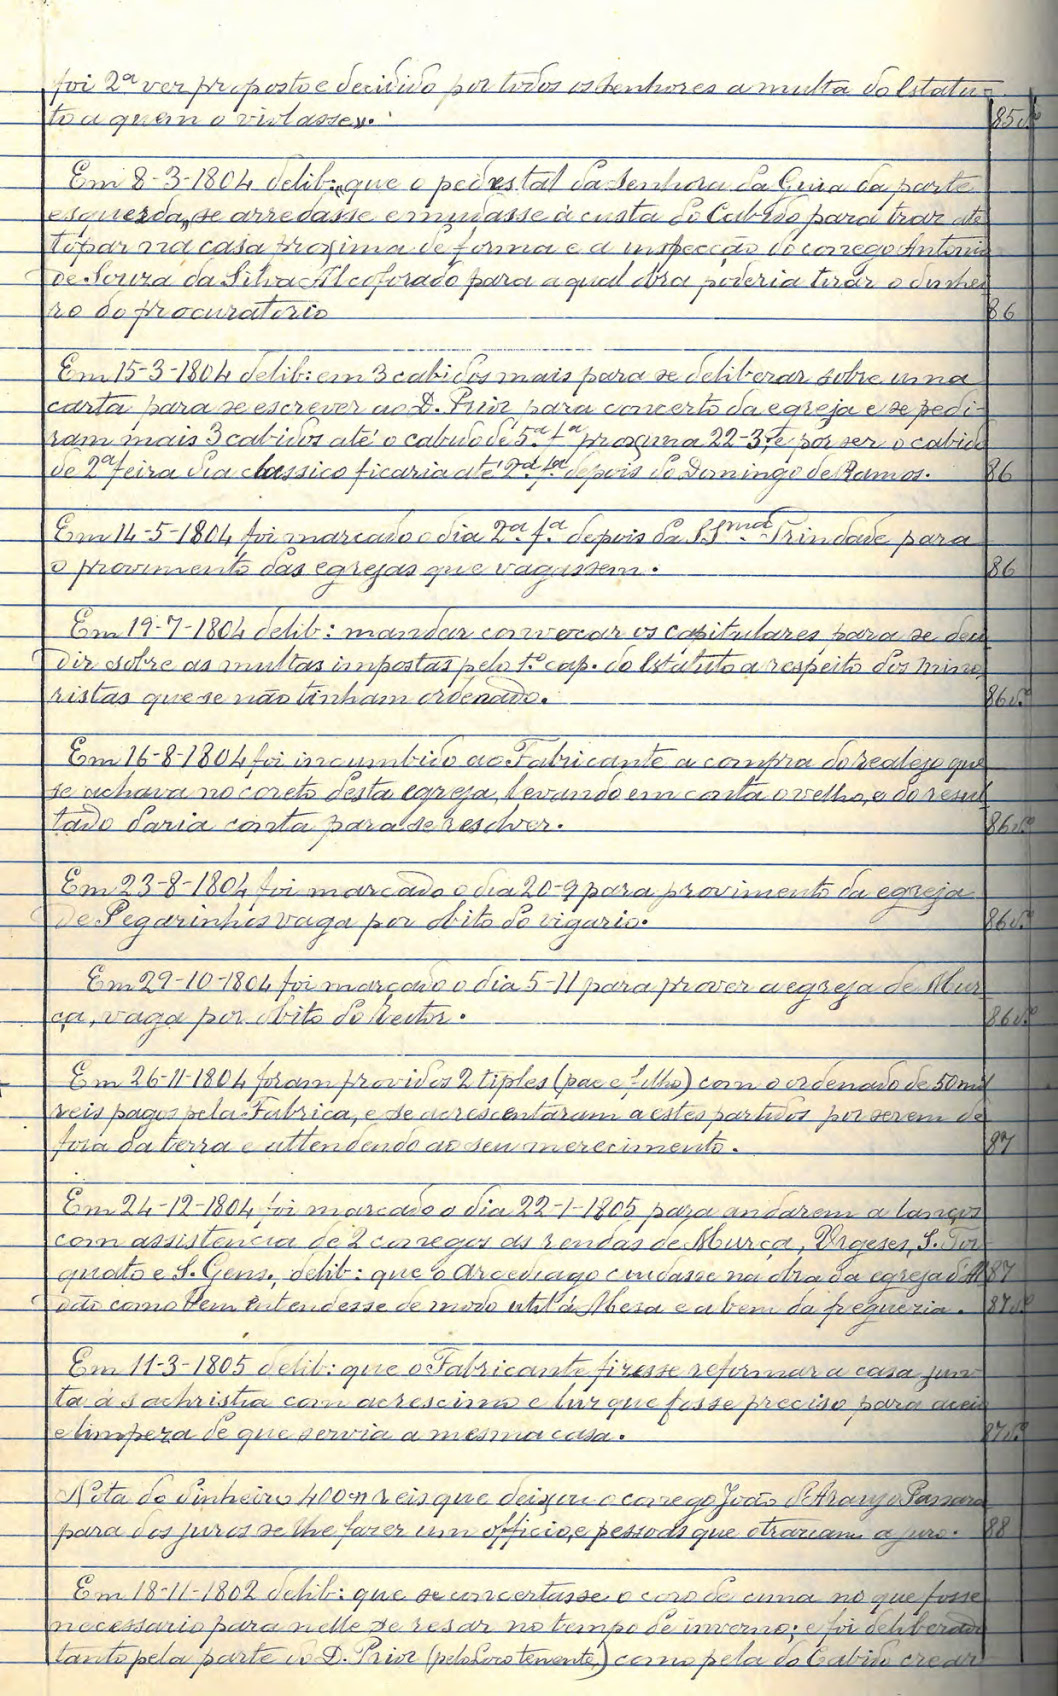 foi 2ª vez proposto e decidido por todos os senhores a multa do Estatu-
to a quem o violasse». 85v.º
Em 8-3-1804 delib: «que o pedestal da Senhora da Guia da parte
esquerda» se arredasse e mudasse á custa do Cabido para tras até
topar na casa proxima de forma e a inspecção do conego Antonio
de Souza da Silva Alcoforado para a qual obra poderia tirar o dinhei
ro do procuratorio 86
Em 15-3-1804 delib: em 3 cabidos mais para se deliberar sobre uma
carta para se escrever ao D. Prior para concerto da egreja e se pedi-
ram mais 3 cabidos até o cabido de 5ª fª proxima 22-3, e por ser o cabido
de 2ª feira dia classico ficaria até 2ª fª depois do Domingo de Ramos. 86
Em 14-5-1804 foi marcado o dia 2ª fª depois da SSma Trindade para
o provimento das egrejas que vagassem. 86
Em 19-7-1804 delib: mandar convocar os capitulares para se deci
dir sobre as multas impostas pelo 1.º cap. do Estatuto a respeito dos mino
ristas que se não tinham ordenado. 86v.º
Em 16-8-1804 foi incumbido ao Fabricante a compra do realejo que
se achava no coreto desta egreja, levando em conta o velho, e do resul
tado daria conta para se resolver. 86v.º
Em 23-8-1804 foi marcado o dia 20-9 para provimento da egreja
de Pegarinhos vaga por obito do vigario. 86v.º
Em 29-10-1804 foi marcado o dia 5-11 para prover a egreja de Mur
ça, vaga por obito do Reitor. 86v.º
Em 26-11-1804 foram providos 2 tiples (pae e filho) com o ordenado de 50 mil
reis pagos pela Fabrica, e se acrescentaram a estes partidos por serem de
fora da terra e attendendo ao seu merecimento. 87
Em 24-12-1804 foi marcado o dia 22-1-1805 para andarem a lanços
com assistencia de 2 conegos as rendas de Murça, Urgeses, S. Tor
quato e S. Gens., delib: que o Arcediago cuidasse na obra da egreja d'Al 87
dão como bem entendesse de modo util á Mesa e a bem da freguezia. 87v.º
Em 11-3-1805 delib: que o Fabricante fizesse reformar a casa jun-
ta á sachristia com acrescimo e luz que fosse preciso para aceio
e limpeza de que servia a mesma casa. 87v.º
Nota do dinheiro 400 m reis que deixou o conego João d'Araujo Passara
para dos juros se lhe fazer um officio, e pessoas que o traziam a juro. 88
Em 18-11-1802 delib: que se concertasse o coro de cima no que fosse
necessario para nelle se resar no tempo de inverno; e foi deliberado
tanto pela parte do D. Prior (pelo Loco tenente) como pela do Cabido crear